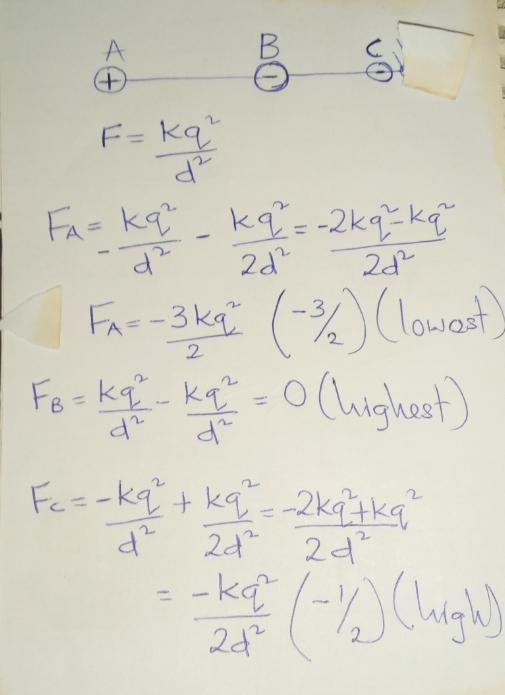 A B C
+ - -
F = kq²/d²
F_A = -kq²/d² - kq²/2d² = -2kq²-kq²/2d²
F_A = -3kq²/2 (-3/2) (lowest)
F_B = kq²/d² - kq²/d² = 0 (highest)
F_C = -kq²/d² + kq²/2d² = -2kq²+kq²/2d²
= -kq²/2d² (-1/2) (high)